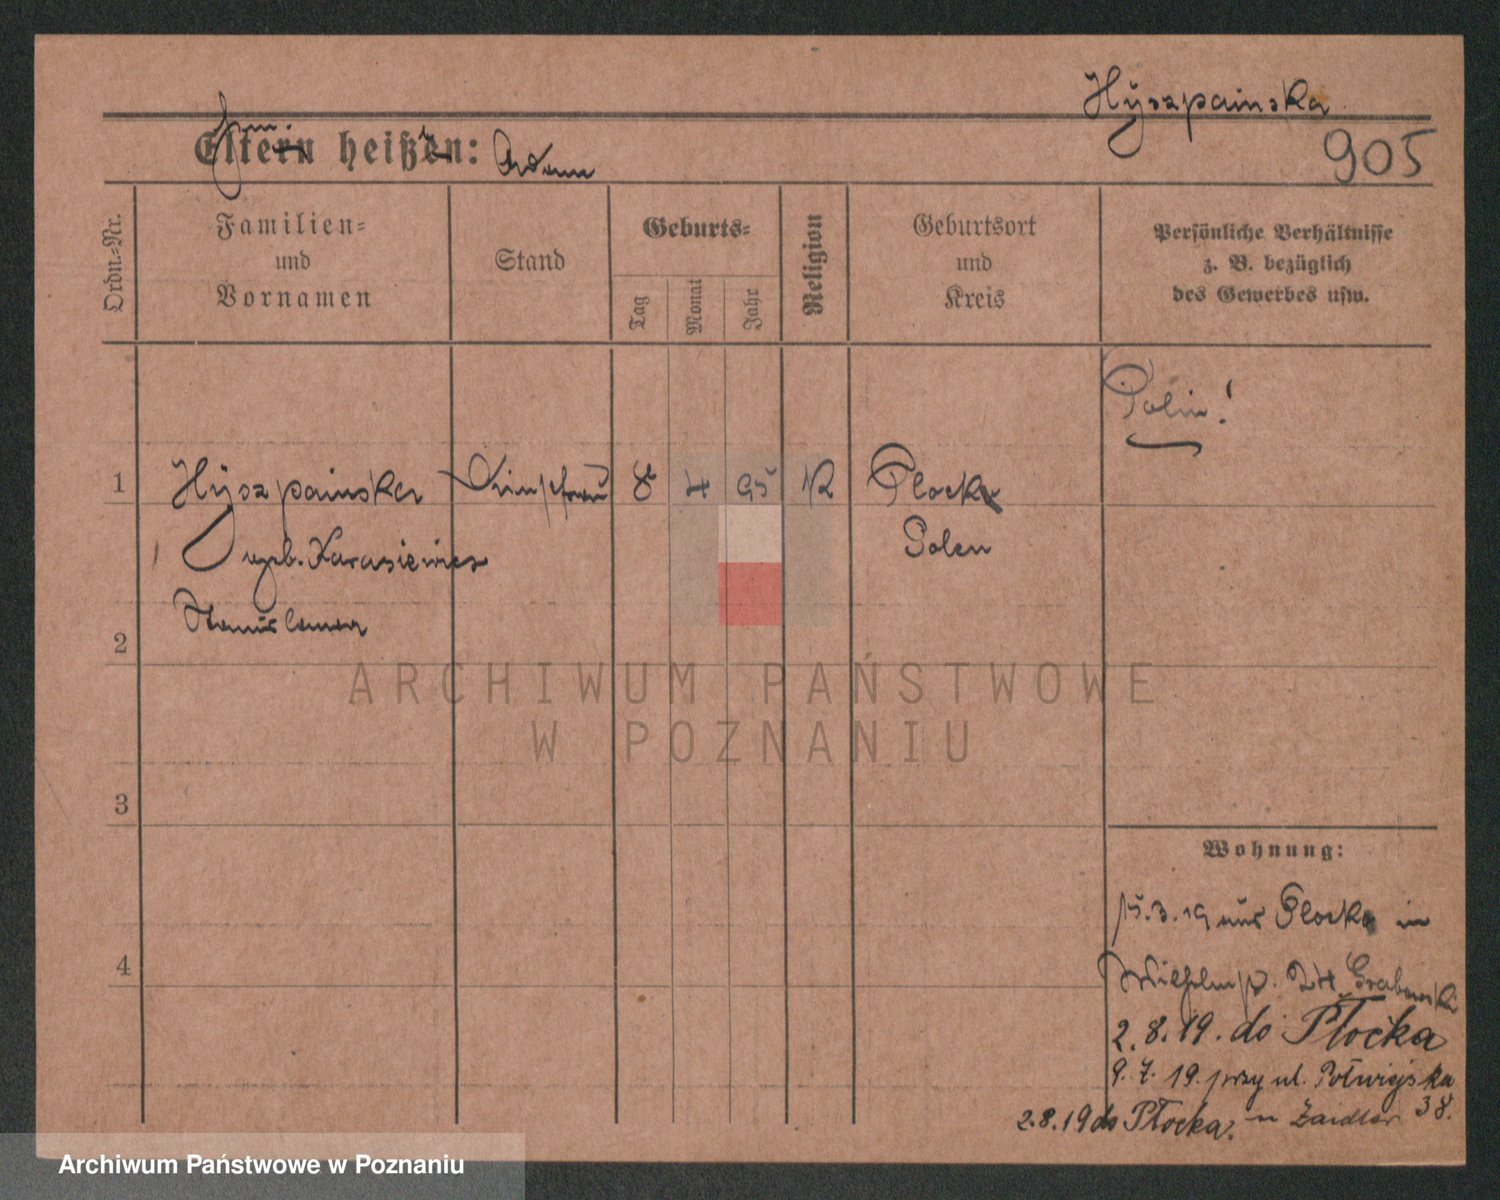 Hÿszpainska
905
Eltern heißen: Adam
Ordn.-Nr.
Familien-
und
Vornamen
Stand
Geburts-
Tag
Monat
Jahr
Religion
Geburtsort
und
Kreis
Persönliche Verhältnisse
z. B. bezüglich
des Gewerbes usw.
Polin!
1
Hÿszpainska
8 4 95 K Plock
geb. Karasiewicz
Polen
Stanislawa
2
ARCHIWUM PAŃSTWOWE
W POZNANIU
3
Wohnung:
15.3.19 aus Plock in
4
Wilhelmp. 24 Grabowski
2.8.19. do Płocka
9.7.19. przy ul. Półwiejska
38.
2.8.19 do Płocka. u Zaidler
Archiwum Państwowe w Poznaniu